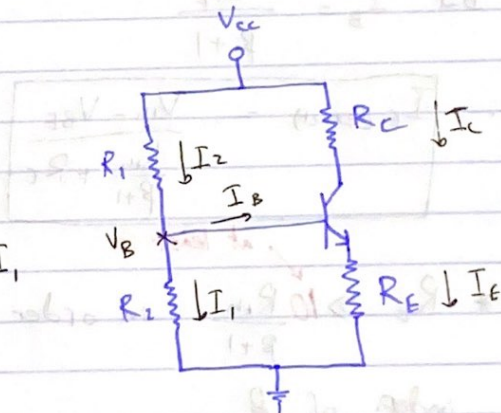 Vcc
R1 ↓I2 RC ↓IC
IB
VB
I1
R2 ↓I1 RE ↓IE